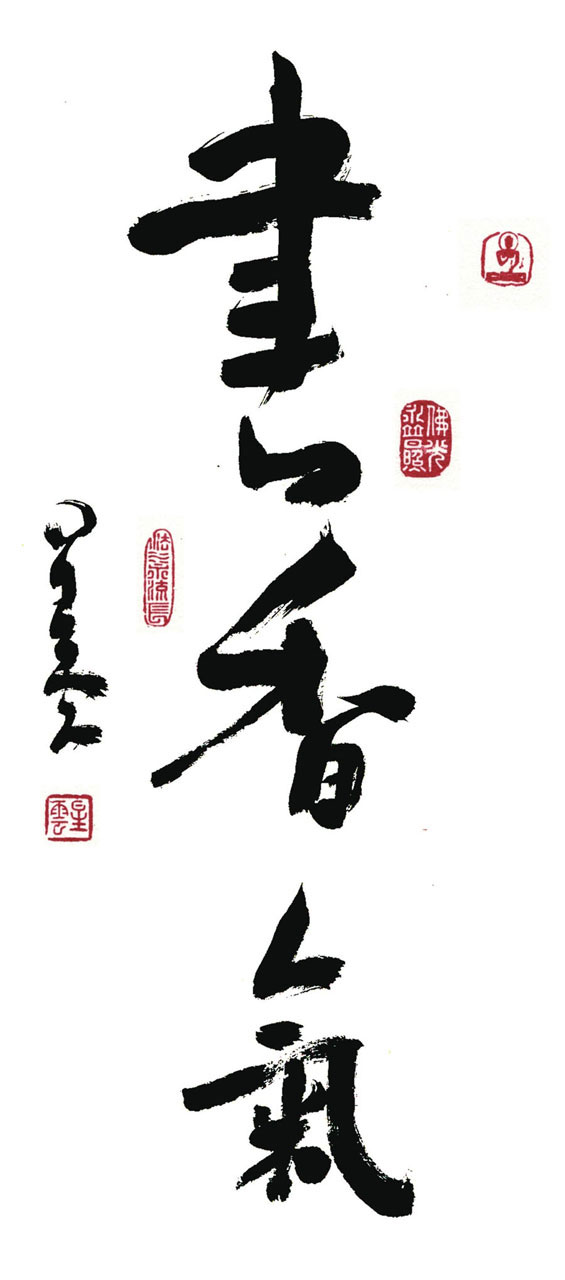 書香氣
佛光
普照
法水
流長
星雲
星雲